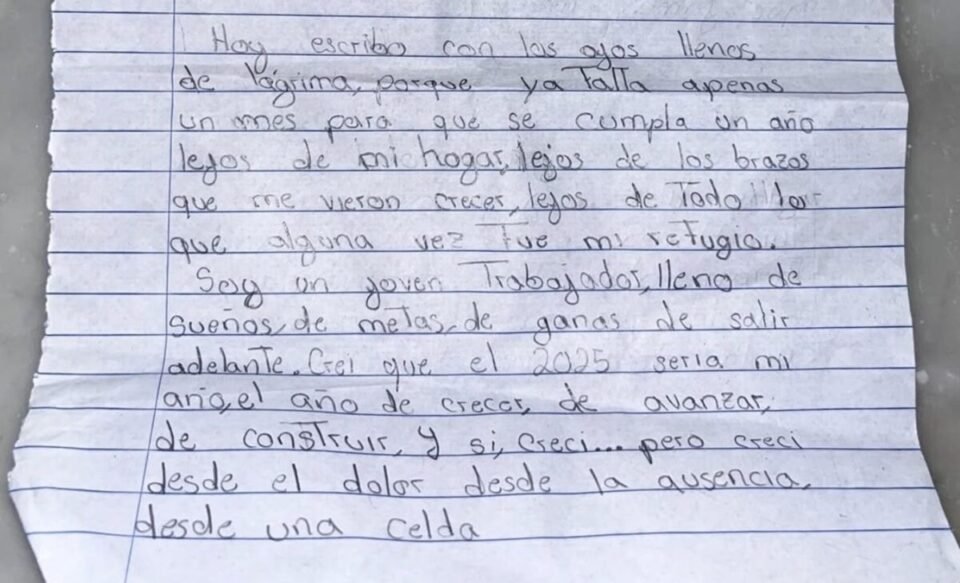 Hoy escribo con los ojos llenos
de lágrima, porque ya falta apenas
un mes para que se cumpla un año
lejos de mi hogar, lejos de los brazos
que me vieron crecer, lejos de Todo
que alguna vez fue mi refugio.
Soy un joven Trabajador, lleno de
sueños, de metas, de ganas de salir
adelante. Crei que el 2025 seria mi
año, el año de crecer, de avanzar,
de construir, y si, creci... pero creci
desde el dolor desde la ausencia,
desde una celda